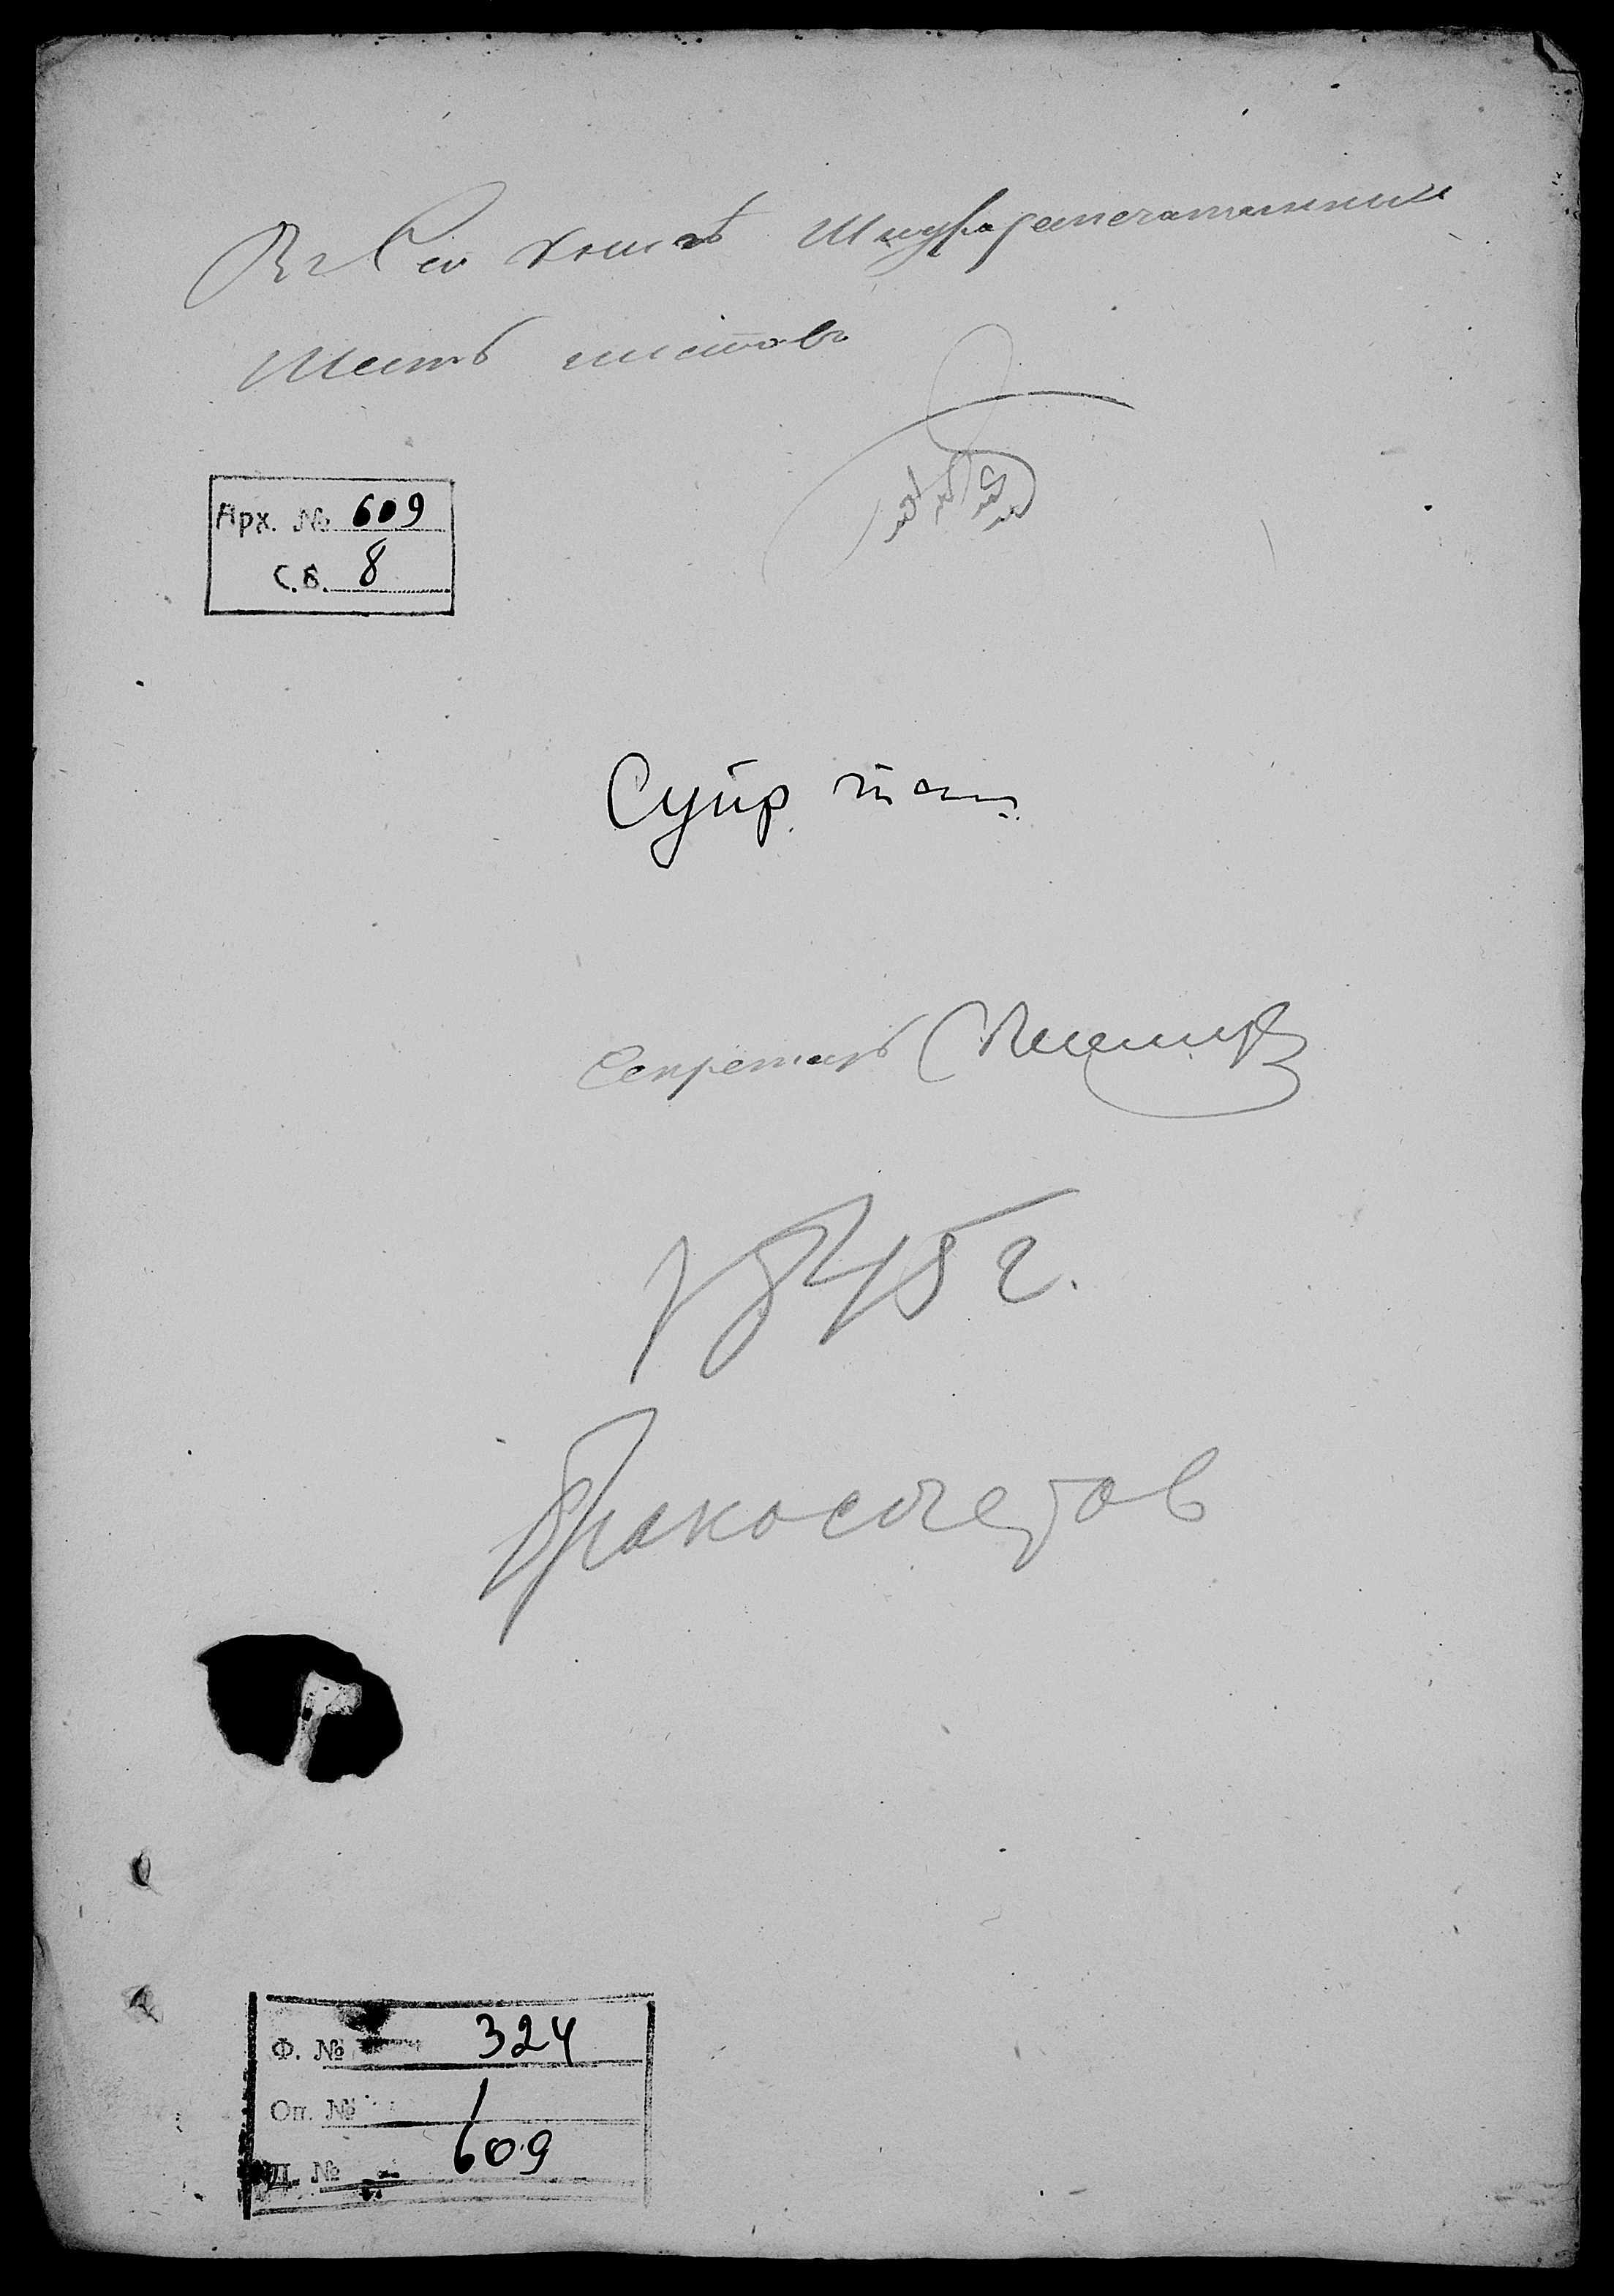 Въ Сей книгѣ Шнурозапечатанныхъ
Шесть листовъ
Арх. № 609
С.В. 8
Секретарь
1845 г.
Бракосочетав
Ф. № 324
Оп. № 1
Д. № 609